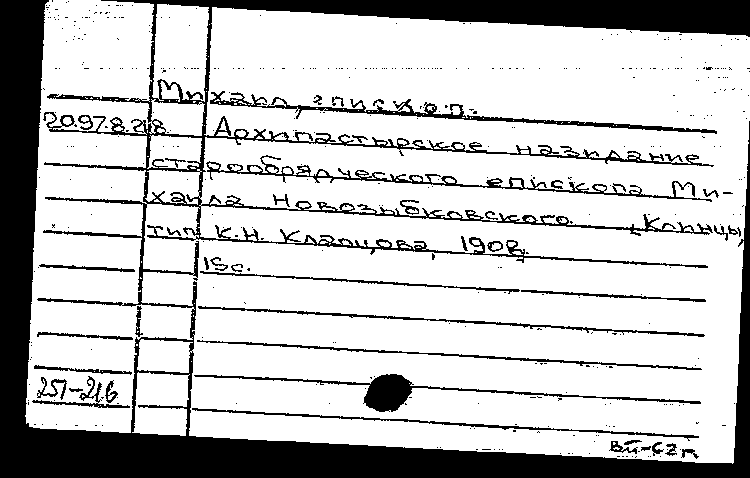 Михаил, епископ.
20.97.8.218 Архипастырское назидание
старообрядческого епископа Ми-
хаила Новозыбковского. Клинцы,
тип. К.Н. Клапцова, 1908.
15с.
251-216
ВП-62г.